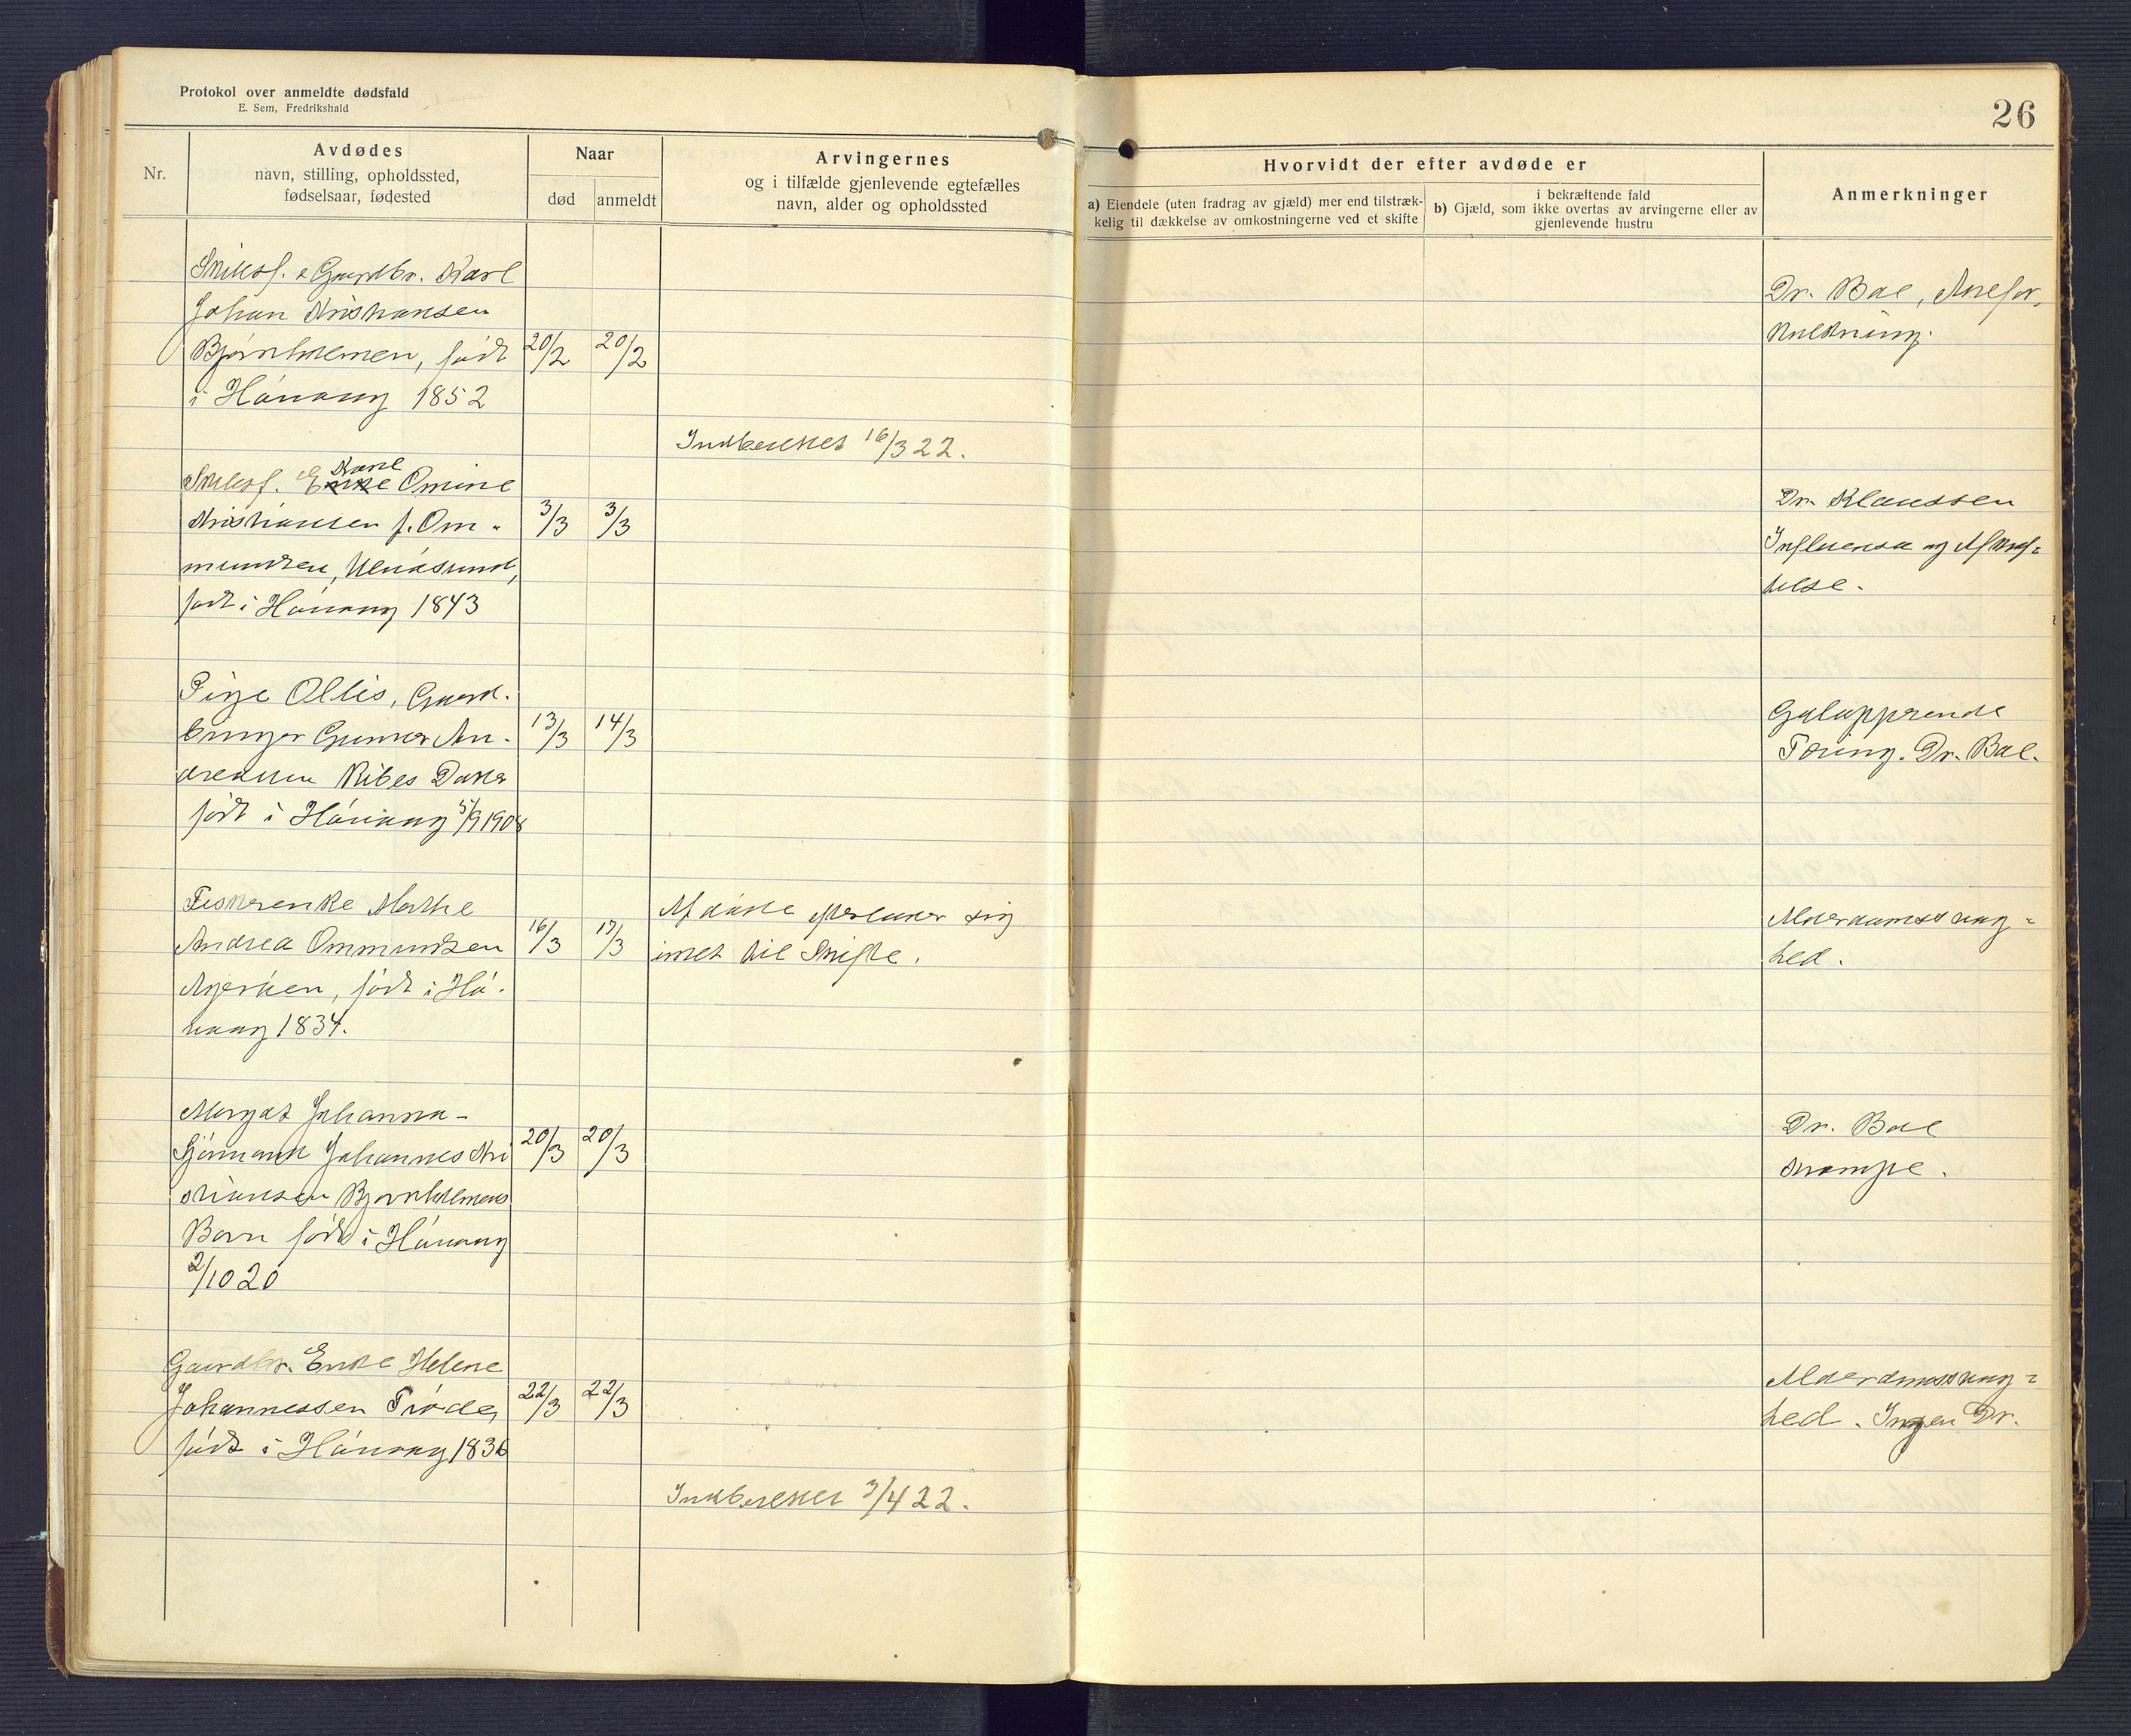 Protokol over anmeldte dødsfald
E. Sem, Fredrikshald
26
Nr.
Avdødes
navn, stilling, opholdssted,
fødselsaar, fødested
Naar
død
anmeldt
Arvingernes
og i tilfælde gjenlevende egtefælles
navn, alder og opholdssted
Hvorvidt der efter avdøde er
a) Eiendele (uten fradrag av gjæld) mer end tilstræk-
kelig til dækkelse av omkostningerne ved et skifte
i bekræftende fald
b) Gjæld, som ikke overtas av arvingerne eller av
gjenlevende hustru
Anmerkninger
Gaardbr. Karl
Johan Kristiansen
Bjørnholmen, født 20/2 20/2
i Hövaag 1852
Dr. Boe, Aarefor-
kalkning.
Indberettet 16/3 22.
Kone
Enke Omine
Kristiansen f. Om-
mundsen, Ulvøsund,
født i Hövaag 1843
3/3 3/3
Dr. Klaussen
Influensa og Afkræf-
telse.
Pige Ollis, Gaard-
bruger Gunner An-
dreassen Ribes Datter
født i Hövaag 5/9 1908
13/3 14/3
Galopperende
Tæring. Dr. Boe.
Fiskerenke Marthe
Andrea Ommundsen
Agerøen, født i Hö-
vaag 1834.
16/3 17/3
Afdøde efterlader sig
intet til Skifte.
Alderdomssvag-
hed.
Margot Johanna -
Sjömand Johannes Kri
stiansen Bjørnholmens
Barn født i Hövaag
2/10 20
20/3 20/3
Dr. Boe
Krampe.
Gaardbr. Enke Helene
Johannessen Trøde,
født i Hövaag 1836
22/3 22/3
Alderdomssvag-
hed. Ingen Dr.
Indberettet 3/4 22.